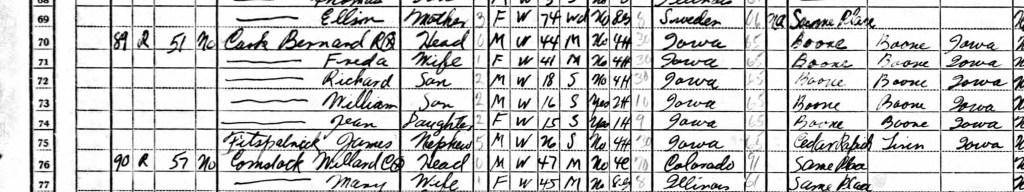 69 Ellin Mother 3 F W 74 Wd No 8 Sweden Same Place
70 89 R 51 No Bernard R Head 0 M W 44 M No H4 30 Iowa 65 Boone Boone Iowa
71 Freda Wife 1 F W 41 M No H4 30 Iowa 65 Boone Boone Iowa
72 Richard Son 2 M W 18 S No H4 30 Iowa 65 Boone Boone Iowa
73 William Son 2 M W 16 S Yes 10 Iowa 65 Boone Boone Iowa
74 Jean Daughter 2 F W 15 S Yes 9 Iowa 65 Boone Boone Iowa
75 Fitzpatrick James Nephew 5 M W 26 S No H4 30 Iowa 65 Cedar Rapids Linn Iowa
76 90 R 57 No Comstock Millard C Head 0 M W 47 M No Colorado 91 Same Place
77 Mary Wife 1 F W 45 M No 8 Illinois 61 Same Place